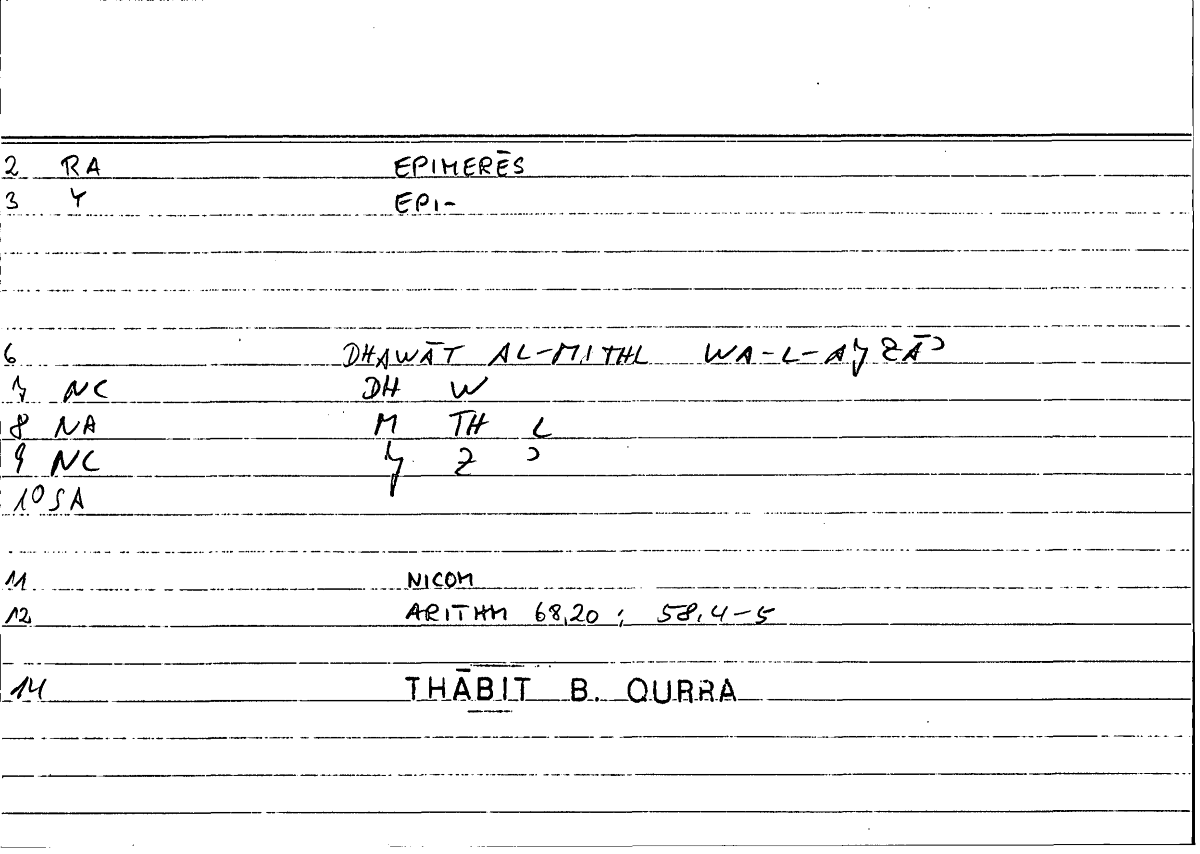 2 RA EPIMERĒS
3 Y EPI-
6 DHAWĀT AL-MITHL WA-L-AJZĀʾ
7 NC DH W
8 NA M TH L
9 NC J Z ʾ
10 SA
11 NICOM
12 ARITHM 68,20 ; 58,4-5
14 THĀBIT B. QURRA